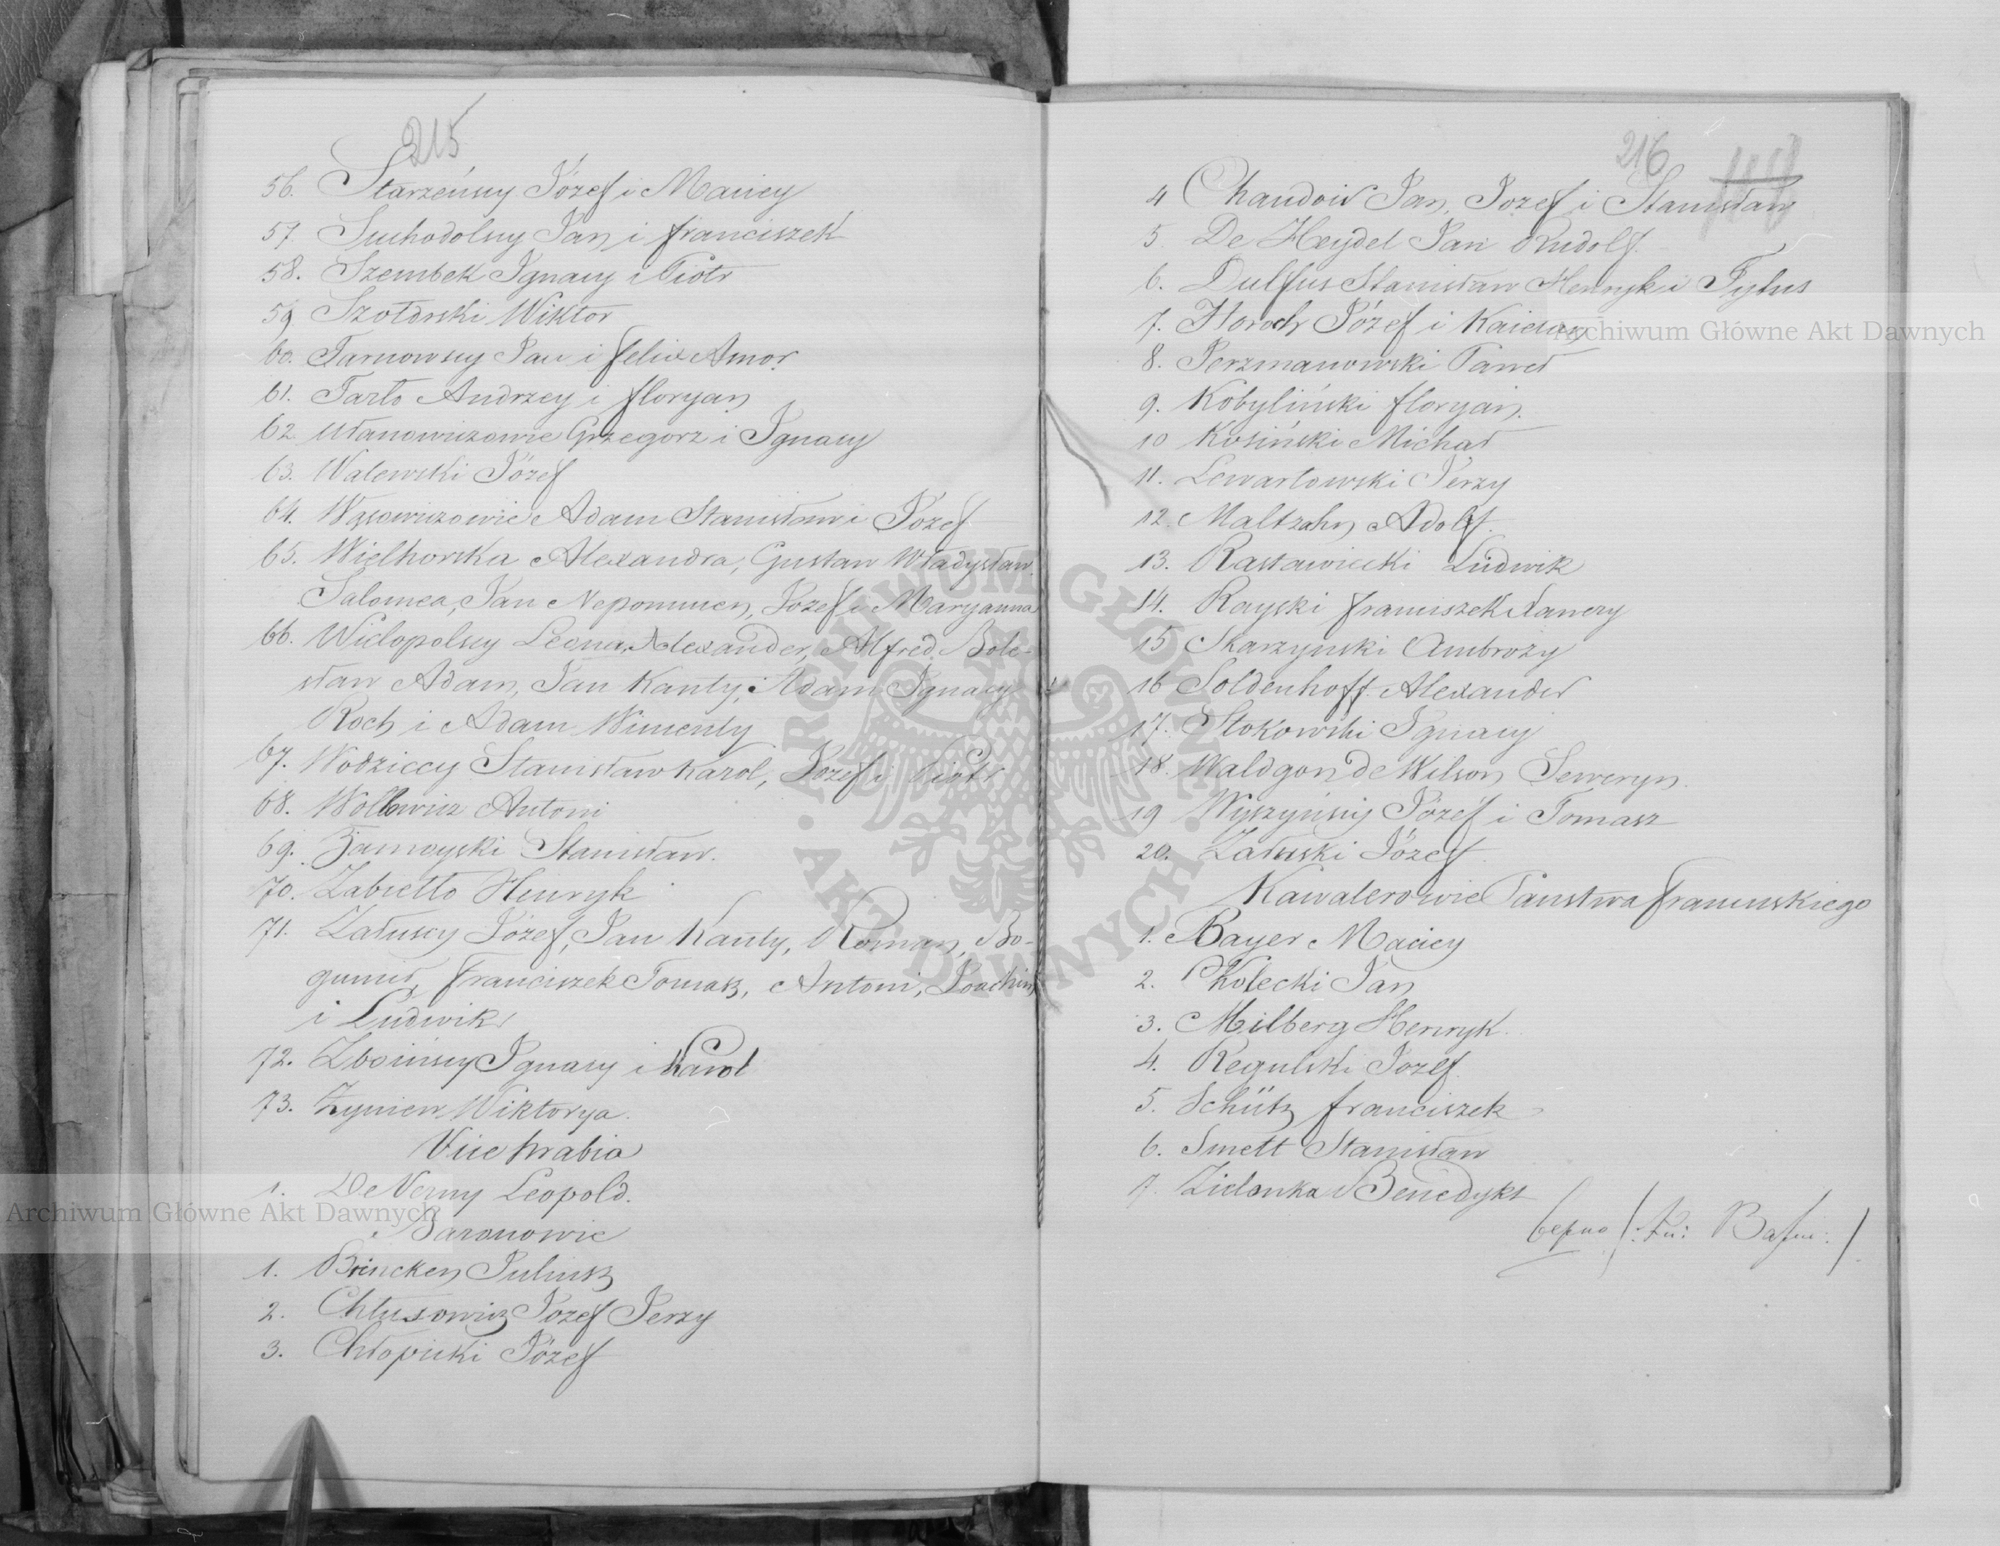 215
56. Starzeńscy Józef i Maciey
57. Suchodolscy Jan i Franciszek
58. Szembek Ignacy i Piotr
59 Szołdrski Wiktor
60. Tarnowscy Jan i Felix Amor.
61. Tarło Andrzey i Floryan
62 Ułanowiczowie Grzegorz i Ignacy
63. Walewski Józef
64. Wąsowiczowie Adam Stanisław i Józef
65. Wielhorska Alexandra, Gustaw Władysław
Salomea, Jan Nepomucen, Józef i Maryanna
66. Wielopolscy Leona, Alexander, Alfred, Bole-
sław Adam, Jan Kanty, Adam Ignacy
Roch i Adam Wincenty
67. Wodziccy Stanisław Karol, Józef i Piotr
68. Wołłowicz Antoni
69. Zamoyski Stanisław.
70. Zabiełło Henryk
71. Załuscy Józef, Jan Kanty, Roman, Bo-
gumił, Franciszek Tomasz, Antoni, Joachim
i Ludwik
72. Zboińscy Ignacy i Karol
73. Zyniew Wiktorya.
Vice hrabia
1. De Verny Leopold.
Baronowie
1. Brincken Juliusz
2. Chłusowicz Józef Jerzy
3. Chłopicki Józef
216
4 Chaudoir Jan, Jozef i Stanisław
5. De Heydel Jan Rudolf.
6. Dulfus Stanisław Henryk i Tytus
7. Horoch Józef i Kajetan
8. Jerzmanowski Paweł
9. Kobyliński Floryan.
10 Kosiński Michał
11. Lewartowski Jerzy
12. Maltzahn Adolf.
13. Rastawiecki Ludwik
14. Rayski Franciszek Xawery
15 Skarzynski Ambroży
16 Soldenhoff Alexander
17. Stokowski Ignacy
18. Waldgon de Wilson Seweryn.
19 Wyszyńscy Józef i Tomasz
20. Załuski Józef
Kawalerowie Państwa Francuskiego
1. Bayer Maciey
2. Kolecki Jan
3. Milberg Henryk.
4. Regulski Jozef
5. Schütz Franciszek
6. Smett Stanisław
7. Zielonka Benedykt
Archiwum Główne Akt Dawnych
Archiwum Główne Akt Dawnych
ARCHIWUM GŁÓWNE
AKT DAWNYCH